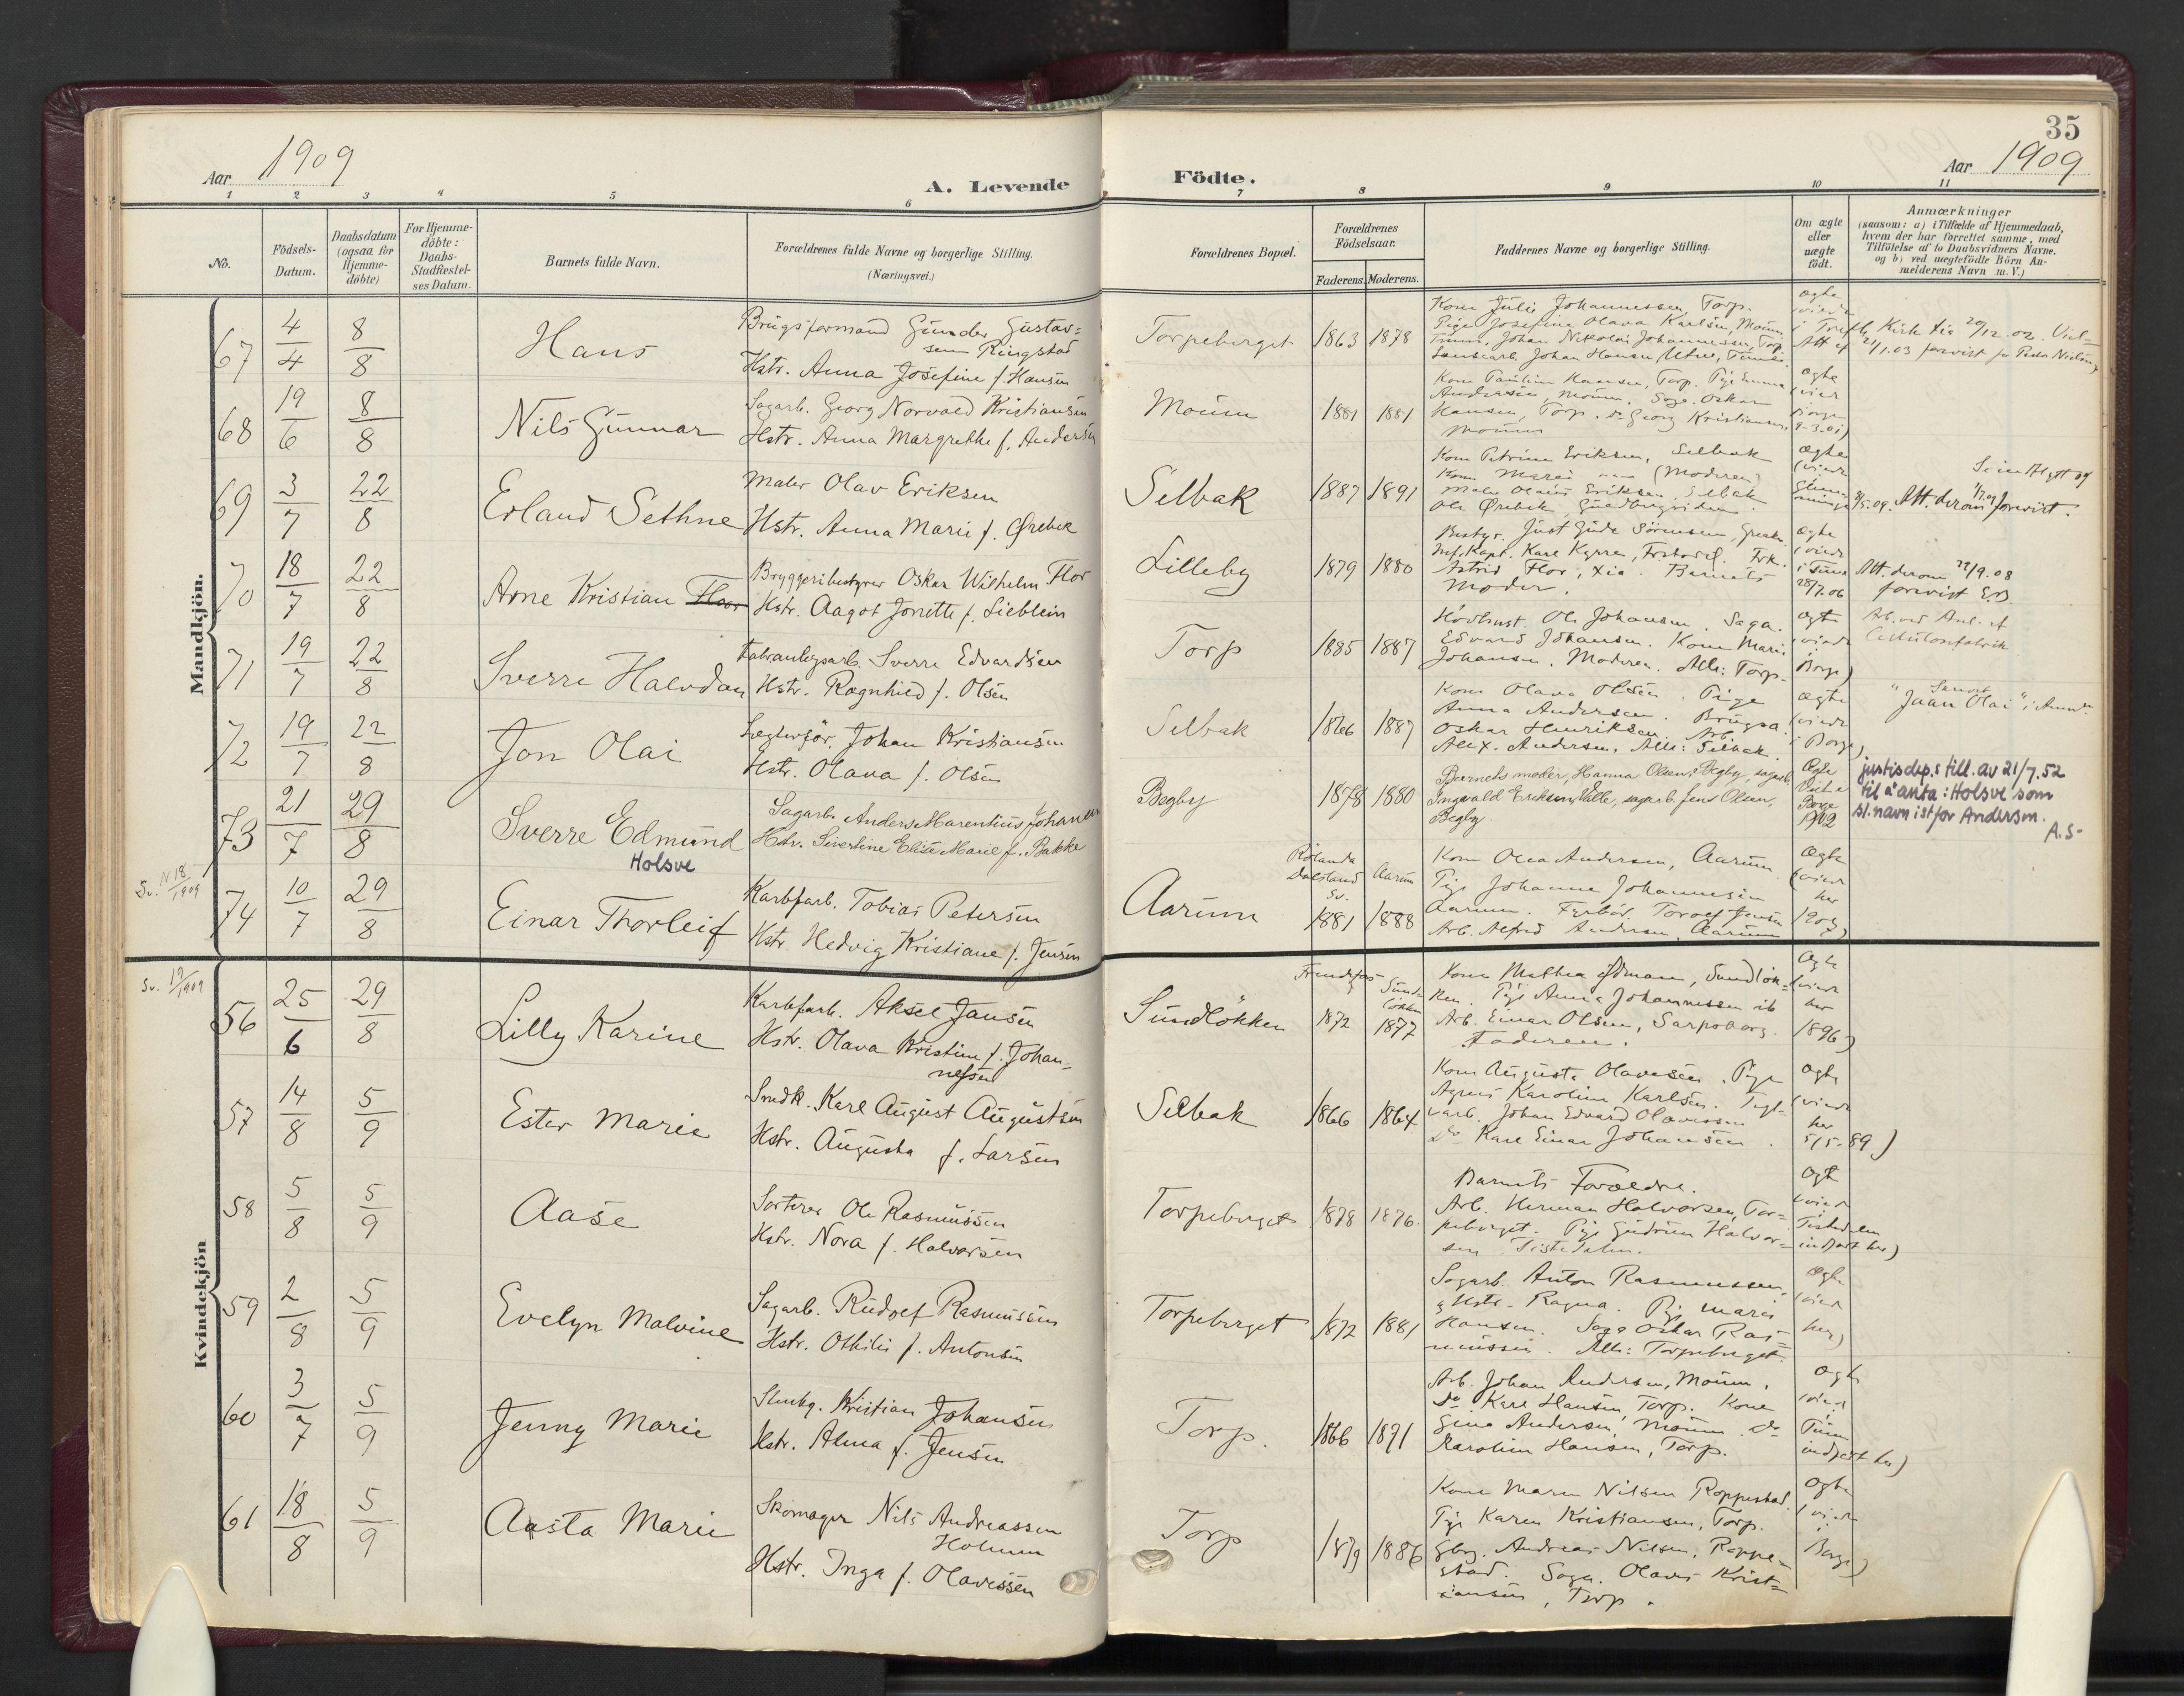 35
Aar 1909
A. Levende Födte.
Aar 1909
1 2 3 4 5 6 7 8 9 10 11
No.
Födsels-
Datum.
Daabsdatum
(ogsaa for
Hjemme-
döbte)
For Hjemme-
döbte:
Daabs-
Stadfæstel-
ses Datum.
Barnets fulde Navn.
Forældrenes fulde Navne og borgerlige Stilling.
(Næringsvei.)
Forældrenes Bopæl.
Forældrenes
Födselsaar.
Faderens. Moderens.
Faddernes Navne og borgerlige Stilling.
Om ægte
eller
uægte
födt.
Anmærkninger
(saasom: a) i Tilfælde af Hjemmedaab,
hvem der har forrettet samme, med
Tilföielse af to Daabsvidners Navne.
og b) ved uægtefödte Börn An-
melderens Navn m. V.)
Mandkjön.
67
4/4
8/8
Hans
Brugsformand Gunder Gustav-
sen Ringstad
Hstr. Anna Josefine f. Hansen
Torpeberget
1863 1878
Kone Julie Johannessen, Torp.
Pige Josefine Olava Karlsen, Moum
Johan Nikolai Johannessen, Torp
Johan Hansen
ægte
68
19/6
8/8
Nils Gunnar
Sagarb. Georg Norvald Kristiansen
Hstr. Anna Margrethe f. Andersen
Moum
1881 1881
Kone Pauline Hansen, Torp. Pige Emma
Andersen, Moum. Saga. Oskar
Hansen, Torp. do Georg Kristiansen,
Moum
ægte
(viet
69
3/7
22/8
Erland Sethne
Maler Olav Eriksen
Hstr. Anna Marie f. Ørebek
Selbak
1887 1891
Kone Petrine Eriksen, Selbak
Kone Marie (Moderen)
Maler Olaus Eriksen Selbak
Ole Ørebek
ægte
Att. derom forevist.
70
18/7
22/8
Arne Kristian Flor
Bryggeribestyrer Oskar Wilhelm Flor
Hstr. Aagot Jonette f. Lieblein
Lilleby
1879 1880
Bestyr. Just Gude Sörensen,
Kapt. Kare Kyrre, Frk.
Astrid Flor, Xia. Barnets
Moder.
ægte
28/7.06
Att. derom 22/9.08
forevist E.B.
71
19/7
22/8
Sverre Halvdan
Sverre Edvardsen
Hstr. Ragnhild f. Olsen
Torp
1885 1887
Ole Johansen. Saga.
Edvard Johansen. Kone Marie
Johansen. Moderen. Alle: Torp.
ægte
Borge)
Arb. ved Anl. af
Cellulosefabrik
72
19/7
22/8
Jon Olai
Johan Kristiansen
Hstr. Olava f. Olsen
Selbak
1866 1887
Kone Olava Olsen. Pige
Anna Andersen. Brugsa.
Oskar Henriksen. Arb.
Alex. Andersen. Alle: Selbak.
ægte
i Borge)
"Jaan Olai"
73
21/7
29/8
Sverre Edmund
Holsve
Sagarb. Anders Marentius Johansen
Hstr. Sivertine Elise Marie f. Bakke
Begby
1878 1880
Barnets moder, Hanna Olsen, Begby, sagarb.
Ingvald Eriksen, Valle, sagarb. Jens Olsen,
Begby.
Ægte
Borge
1902
justisdep.s till. av 21/7.52
til å anta: Holsve som
sl.navn istfor Andersen.
A.S.
Sv. N 18/1909
74
10/7
29/8
Einar Thorleif
Karbfarb. Tobias Petersen
Hstr. Hedvig Kristiane f. Jensen
Aarum
Dalsland
Sv.
1881
Aarum
1888
Kone Olea Andersen, Aarum.
Pige Johanne Johannesen
Aarum. Torolf Jensen
Arb. Alfred Andersen, Aarum
Ægte
(viet
her
1907)
Kvindekjön
Sv. 19/1909
56
25/6
29/8
Lilly Karine
Karbfarb. Aksel Jansen
Hstr. Olava Kristine f. Johan-
nessen
Sundlökken
1872
Sund-
lökken
1877
Kone Mathea Edman, Sundlök-
ken. Pige Anna Johannessen ib
Arb. Einar Olsen, Sarpsborg.
Faderen.
Ægte
(viet
her
1896)
57
14/8
5/9
Ester Marie
Smdk. Karl August Augustsen
Hstr. Augusta f. Larsen
Selbak
1866 1864
Kone Augusta Olavesen. Pige
Agnes Karoline Karlsen. Tegl-
varb. Johan Edvard Olavessen
do Karl Einar Johansen.
ægte
(viet
her
5/5.89)
58
5/8
5/9
Aase
Sorterer Ole Rasmussen
Hstr. Nora f. Halvorsen
Torpeberget
1878 1876
Barnets Forældre.
Arb. Herman Halvorsen, Tor-
peberget. Pige Gudrun Halvor-
sen Tistedalen.
ægte
(viet
Tistedalen
indført her)
59
2/8
5/9
Evelyn Malvine
Sagarb. Rudolf Rasmussen
Hstr. Othilie f. Antonsen
Torpeberget
1872 1881
Sagarb. Anton Rasmussen
& Hstr. Ragna. Pige Marie
Hansen. Saga Oskar Ras-
mussen. Alle: Torpeberget.
ægte
(viet
her)
60
3/7
5/9
Jenny Marie
Kristian Johansen
Hstr. Alma f. Jensen
Torp.
1866 1871
Arb. Johan Andersen, Moum.
do Karl Hansen, Torp. Kone
Gina Andersen, Moum. do
Karoline Hansen, Torp.
ægte
(viet
i
Tune
indført her)
61
18/8
5/9
Aasta Marie
Skomager Nils Andreassen
Holmen
Hstr. Inga f. Olavessen
Torp
1879 1886
Kone Maren Nilsen Roppestad.
Pige Karen Kristiansen, Torp.
Gbrg. Andreas Nilsen, Roppe-
stad. Saga. Olaves Krist-
iansen, Torp.
ægte
(viet
i
Borge)